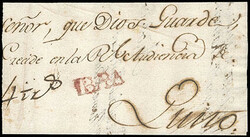 Señor, que Dios Guarde
en la Rl Audiencia
IBRA
Quito